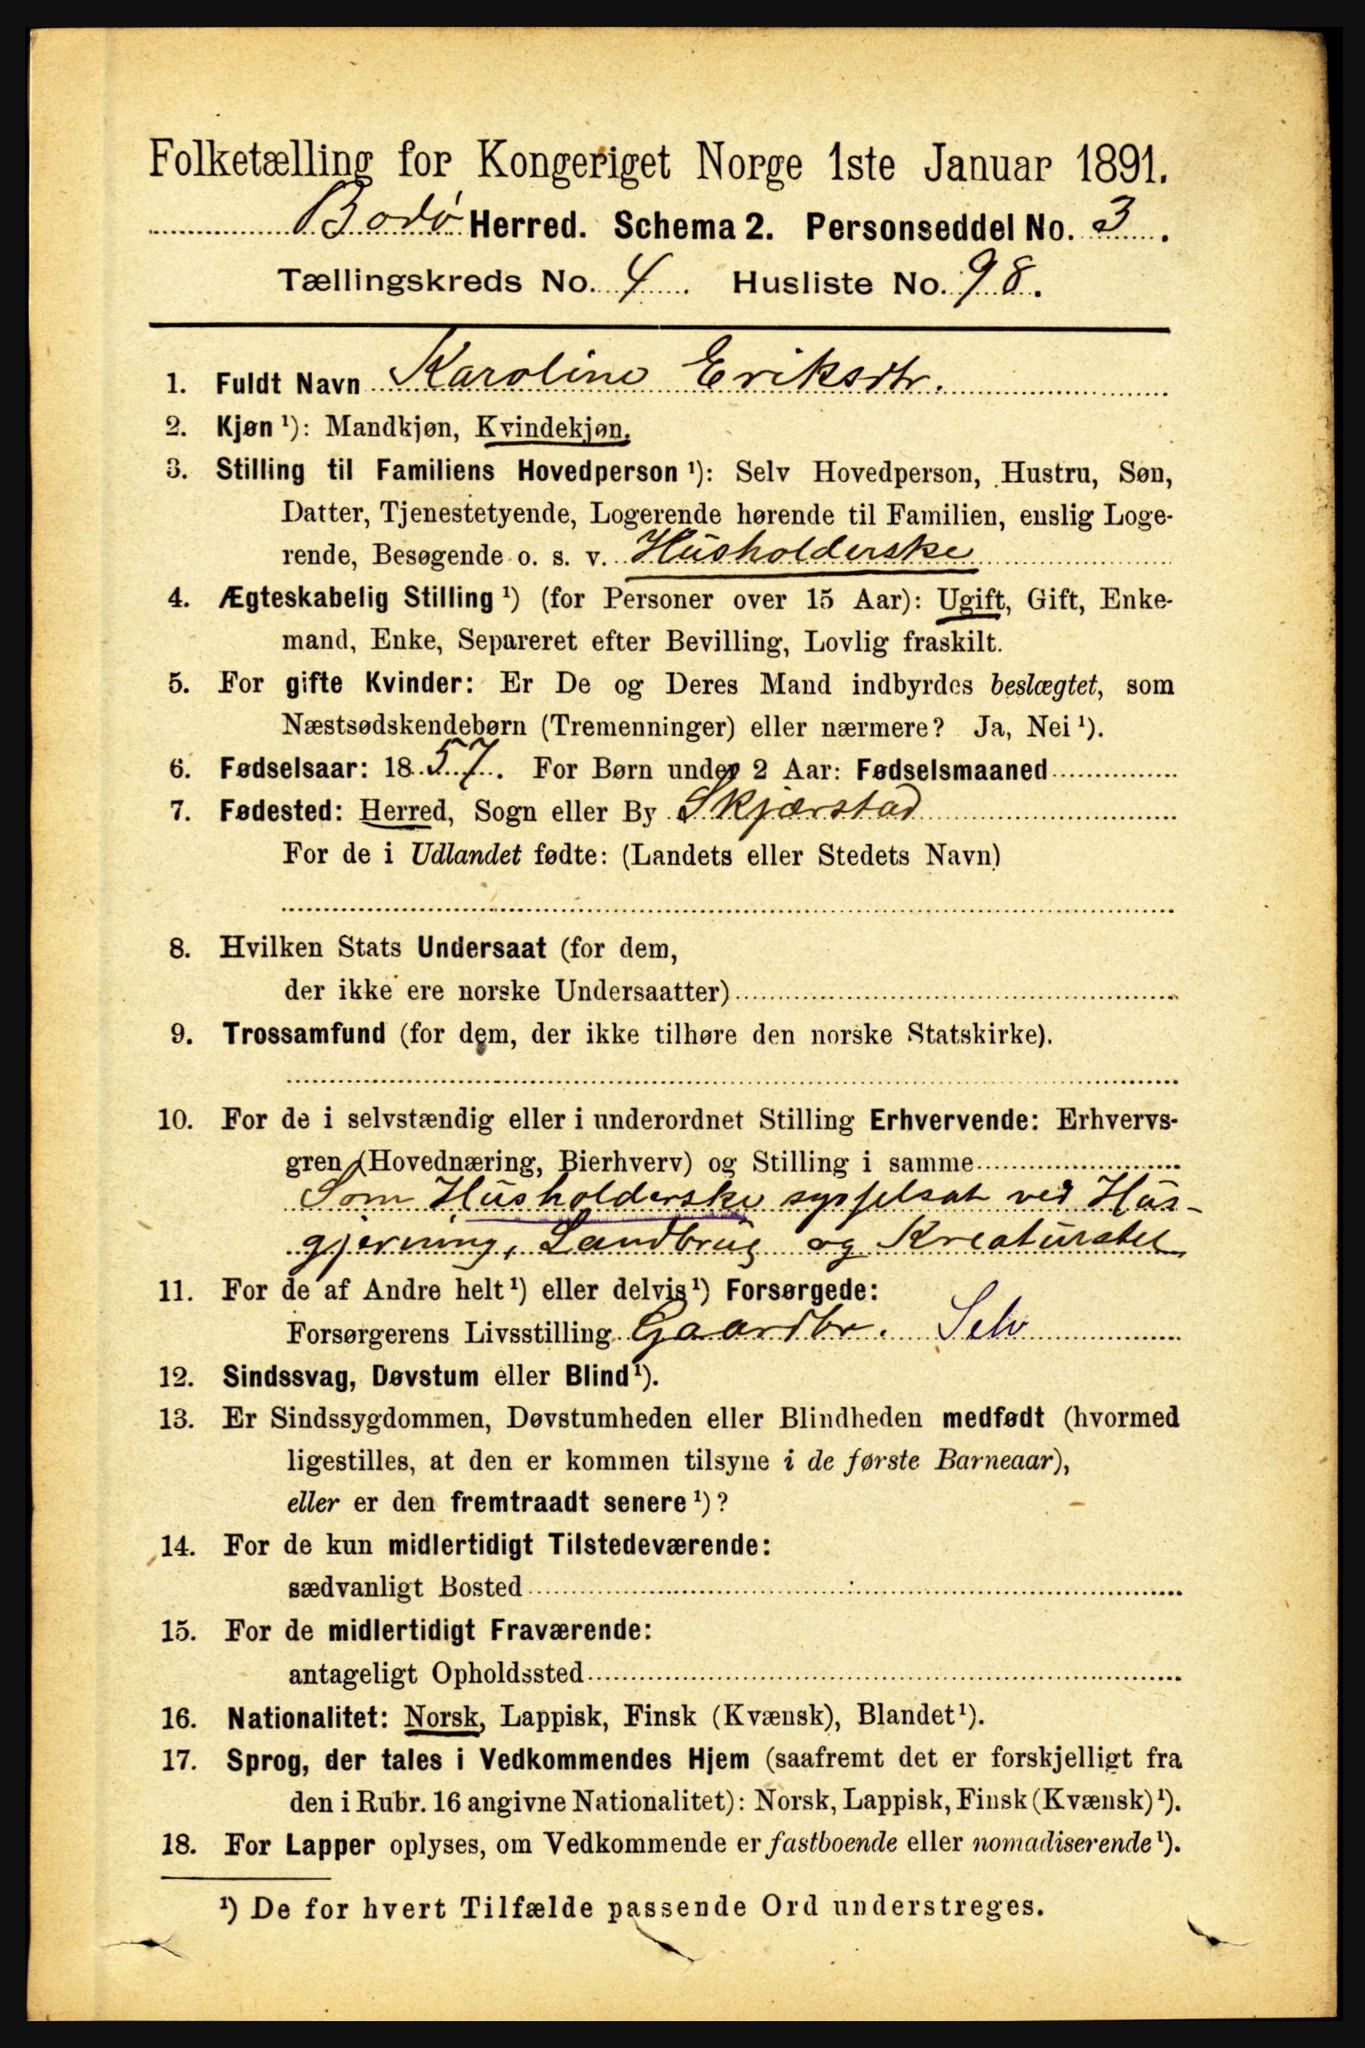 Folketælling for Kongeriget Norge 1ste Januar 1891.
Bodø Herred. Schema 2. Personseddel No. 3.
Tællingskreds No. 4. Husliste No. 98.
1. Fuldt Navn Karoline Eriksdtr.
2. Kjøn ¹): Mandkjøn, Kvindekjøn.
3. Stilling til Familiens Hovedperson ¹): Selv Hovedperson, Hustru, Søn,
Datter, Tjenestetyende, Logerende hørende til Familien, enslig Loge-
rende, Besøgende o. s. v. Husholderske
4. Ægteskabelig Stilling ¹) (for Personer over 15 Aar): Ugift, Gift, Enke-
mand, Enke, Separeret efter Bevilling, Lovlig fraskilt.
5. For gifte Kvinder: Er De og Deres Mand indbyrdes beslægtet, som
Næstsødskendebørn (Tremenninger) eller nærmere? Ja, Nei ¹).
6. Fødselsaar: 1857. For Børn under 2 Aar: Fødselsmaaned
7. Fødested: Herred, Sogn eller By Skjærstad
For de i Udlandet fødte: (Landets eller Stedets Navn)
8. Hvilken Stats Undersaat (for dem,
der ikke ere norske Undersaatter)
9. Trossamfund (for dem, der ikke tilhøre den norske Statskirke).
10. For de i selvstændig eller i underordnet Stilling Erhvervende: Erhvervs-
gren (Hovednæring, Bierhverv) og Stilling i samme
Som Husholderske sysselsat ved Hus-
gjerning, Landbrug og Kreaturstel
11. For de af Andre helt ¹) eller delvis ¹) Forsørgede:
Forsørgerens Livsstilling Gaardbr. Selv
12. Sindssvag, Døvstum eller Blind ¹).
13. Er Sindssygdommen, Døvstumheden eller Blindheden medfødt (hvormed
ligestilles, at den er kommen tilsyne i de første Barneaar),
eller er den fremtraadt senere ¹)?
14. For de kun midlertidigt Tilstedeværende:
sædvanligt Bosted
15. For de midlertidigt Fraværende:
antageligt Opholdssted
16. Nationalitet: Norsk, Lappisk, Finsk (Kvænsk), Blandet ¹).
17. Sprog, der tales i Vedkommendes Hjem (saafremt det er forskjelligt fra
den i Rubr. 16 angivne Nationalitet): Norsk, Lappisk, Finsk (Kvænsk) ¹).
18. For Lapper oplyses, om Vedkommende er fastboende eller nomadiserende ¹).
¹) De for hvert Tilfælde passende Ord understreges.